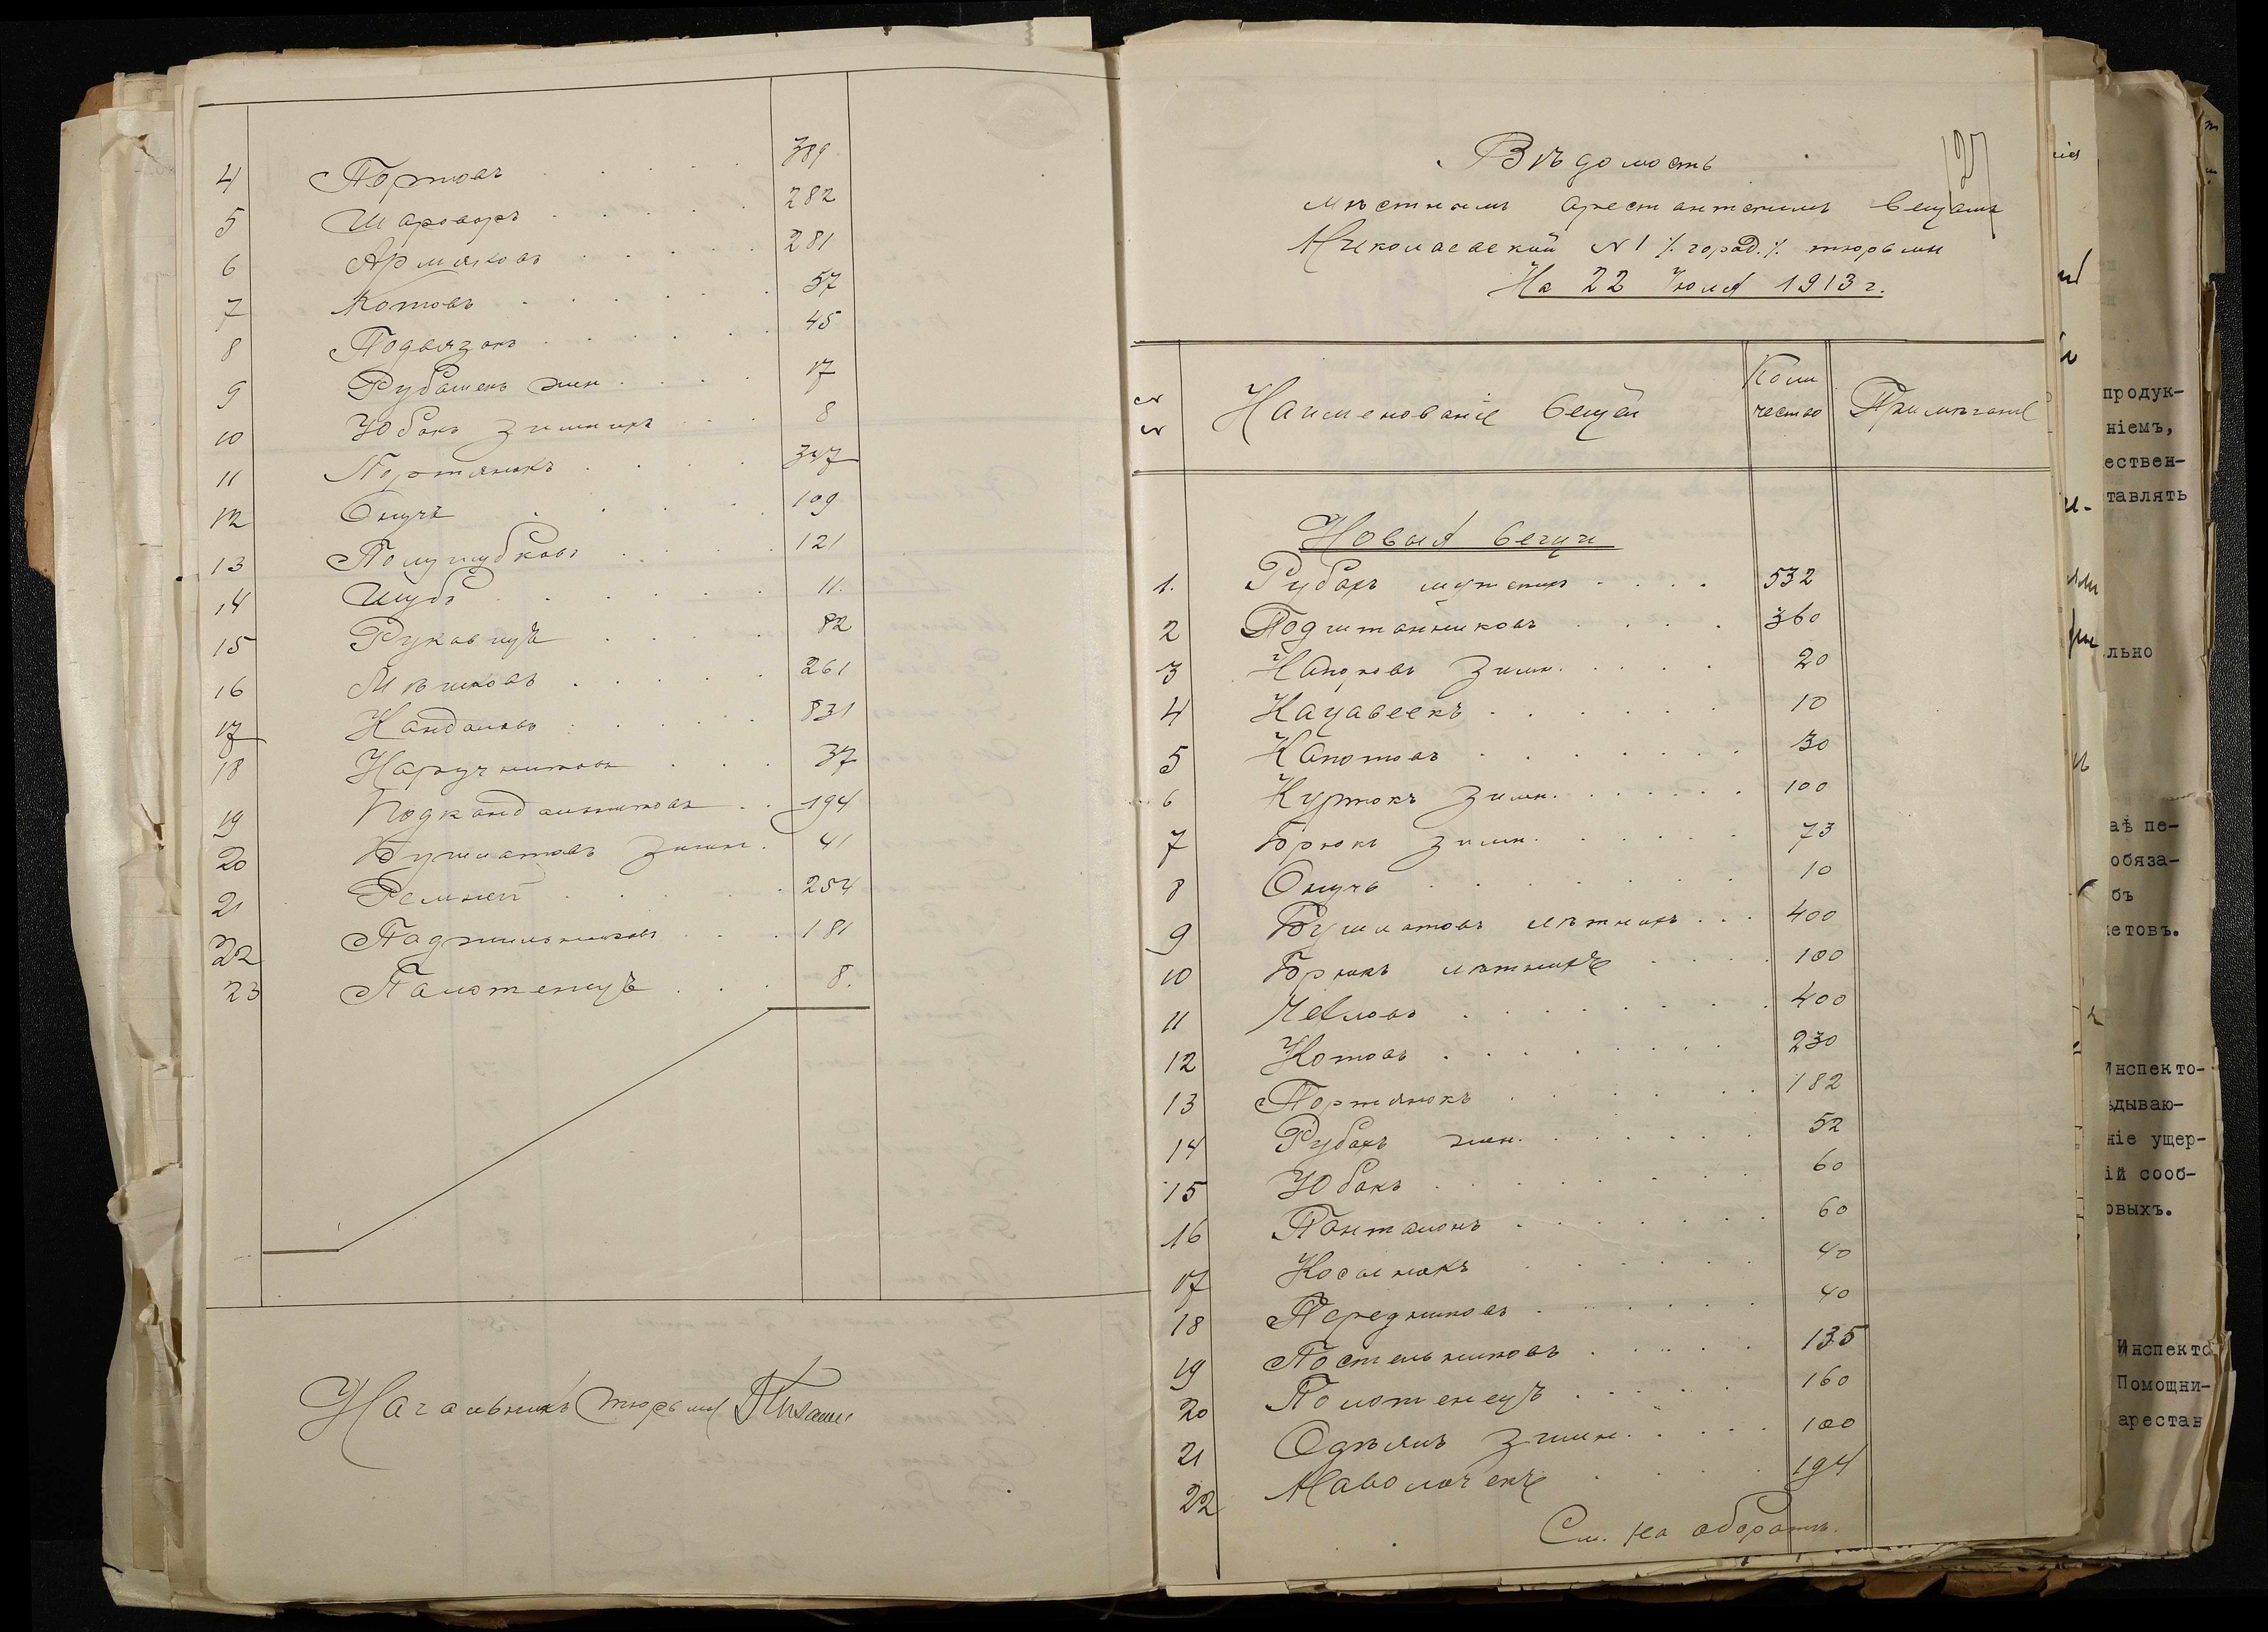 4 Портовъ 389
5 Шароваръ 282
6 Армяковъ 281
7 Котовъ 57
8 Подвязокъ 45
9 Рубашекъ жен 17
10 Юбокъ зимнихъ 8
11 Портянокъ 347
12 Онучъ 109
13 Полушубковъ 121
14 Шубъ 11.
15 Рукавицъ 82
16 Мѣшковъ 261
17 Кандаловъ 831
18 Наручниковъ 37
19 Подкандальниковъ 194
20 Бушлатовъ зимн. 41
21 Ремней 254
22 Паджильниковъ 181
23 Палотенцъ 8.
Начальникъ тюрьмы
127
Вѣдомость
мѣстнымъ арестантскимъ вещамъ
Николаевской №1 ./. город. ./. тюрьмы
На 22 Июля 1913 г.
№№ Наименованіе вещей Коли чество Примѣчаніе
Новыя вещи
1. Рубахъ мужскихъ 532
2 Подштанниковъ 360
3 Халатовъ зимн. 20
4 Кацавеекъ 10
5 Капотовъ 30
6 Куртокъ зимн. 100
7 Брюкъ зимн. 73
8 Онучъ 10
9 Бушлатовъ лѣтнихъ 400
10 Брюкъ лѣтнихъ 100
11 Чехловъ 400
12 Котовъ 230
13 Портянокъ 182
14 Рубахъ жен. 52
15 Юбокъ 60
16 Панталонъ 60
17 Косынокъ 40
18 Передниковъ 40
19 Постельниковъ 135
20 Полотенецъ 160
21 Одѣялъ зимн. 100
22 Наволочекъ 194
См. на оборотѣ.
продук-
ніемъ,
ествен-
тавлять
льно
аѣ пе-
обяза-
бъ
етовъ.
Инспекто-
дываю-
ніе ущер-
ій сооб-
овыхъ.
Инспекто
Помощни-
арестан